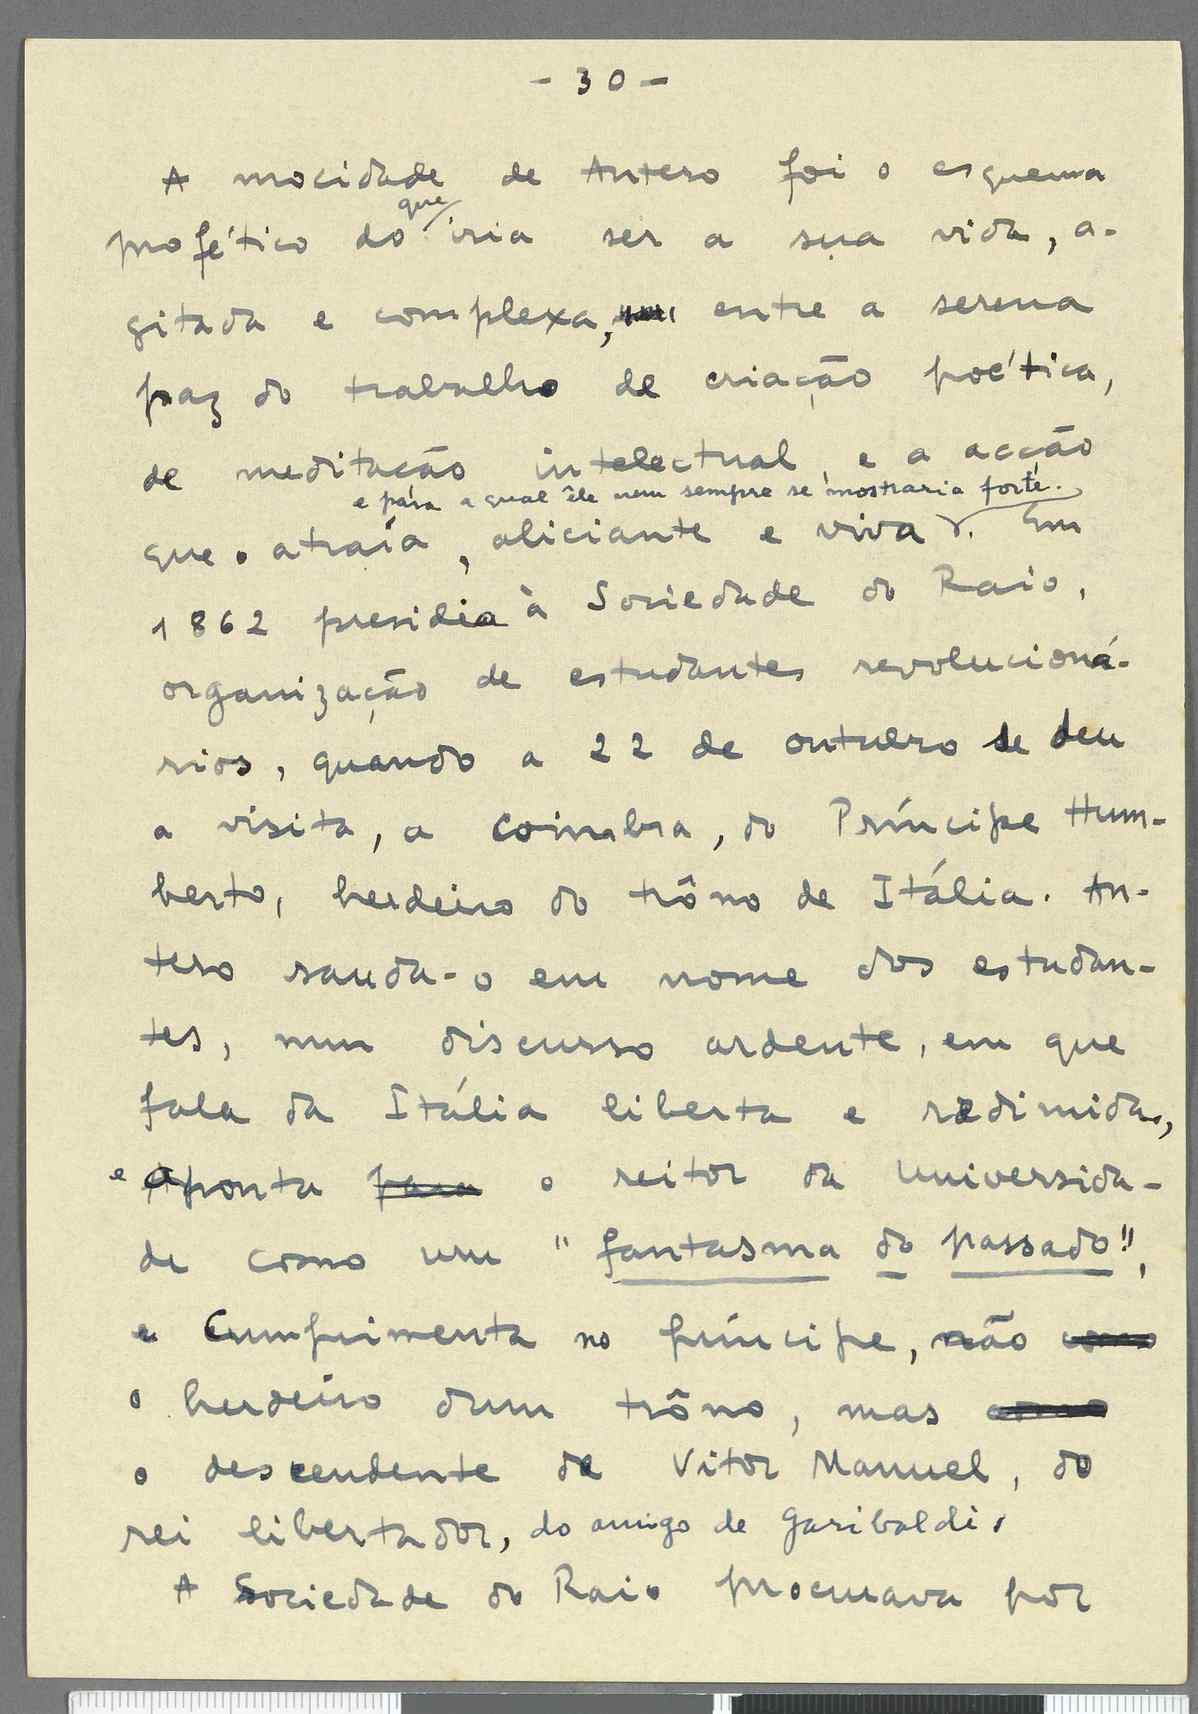 - 30 -
A mocidade de Antero foi o esquema
profético do que iria ser a sua vida, a-
gitada e complexa, entre a serena
paz do trabalho de criação poética,
de meditação intelectual, e a acção
e para a qual êle nem sempre se mostraria forte.
que o atraía, aliciante e viva. Em
1862 presidia à Sociedade do Raio,
organização de estudantes revolucioná-
rios, quando a 22 de outubro se deu
a visita, a Coimbra, do Príncipe Hum-
berto, herdeiro do trôno de Itália. An-
tero sauda-o em nome dos estudan-
tes, num discurso ardente, em que
fala da Itália liberta e redimida,
e aponta para o reitor da Universida-
de como um "fantasma do passado",
e cumprimenta no príncipe, não como
o herdeiro dum trôno, mas como
o descendente de Vitor Manuel, do
rei libertador, do amigo de Garibaldi.
A Sociedade do Raio procurava por